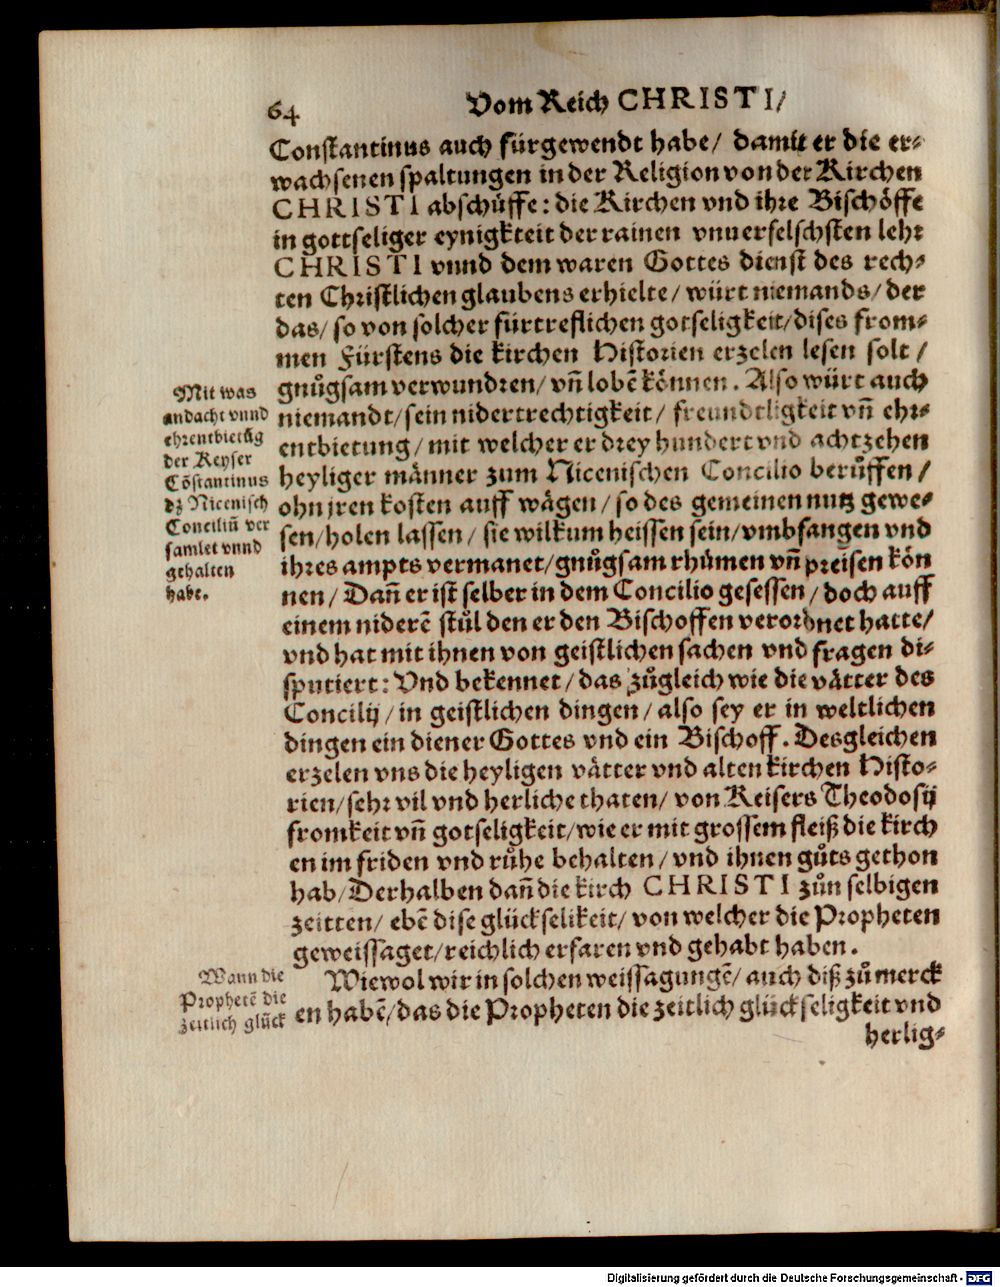 64
Vom Reich CHRISTI/
Constantinus auch fürgewendt habe/ damit er die er⸗
wachsenen spaltungen in der Religion von der Kirchen
CHRISTI abschůffe: die Kirchen vnd ihre Bischöffe
in gottseliger eynigkteit der rainen vnuerfelschsten lehr
CHRISTI vnnd dem waren Gottes dienst des rech⸗
ten Christlichen glaubens erhielte/ würt niemands/ der
das/ so von solcher fürtreflichen gotseligkeit/ dises from⸗
men Fürstens die kirchen Historien erzelen lesen solt/
gnůgsam verwundren/ vn̄ lobē können. Also würt auch
niemandt/ sein nidertrechtigkeit/ freundtligkeit vn̄ ehr⸗
entbietung/ mit welcher er drey hundert vnd achtzehen
heyliger männer zum Nicenischen Concilio berůffen/
ohn jren kosten auff wägen/ so des gemeinen nutz gewe⸗
sen/ holen lassen/ sie wilkum heissen sein/ vmbfangen vnd
ihres ampts vermanet/ gnůgsam rhůmen vn̄ preisen kön
nen/ Dan̄ er ist selber in dem Concilio gesessen/ doch auff
einem niderē stůl den er den Bischoffen verordnet hatte/
vnd hat mit ihnen von geistlichen sachen vnd fragen di⸗
sputiert: Vnd bekennet/ das zůgleich wie die vätter des
Concilij/ in geistlichen dingen/ also sey er in weltlichen
dingen ein diener Gottes vnd ein Bischoff. Desgleichen
erzelen vns die heyligen vätter vnd alten kirchen Histo⸗
rien/ sehr vil vnd herliche thaten/ von Keisers Theodosij
fromkeit vn̄ gotseligkeit/ wie er mit grossem fleiß die kirch
en im friden vnd růhe behalten/ vnd ihnen gůts gethon
hab/ Derhalben dan̄ die kirch CHRISTI zůn selbigen
zeitten/ ebē dise glückselikeit/ von welcher die Propheten
geweissaget/ reichlich erfaren vnd gehabt haben.
Wiewol wir in solchen weissagungē/ auch diß zů merck
en habē/ das die Propheten die zeitlich glückseligkeit vnd
herlig⸗
Mit was
andacht vnnd
ehrentbietūg
der Keyser
Cōstantinus
dz Nicenisch
Conciliū ver
samlet vnnd
gehalten
habe.
Wann die
Prophetē die
zeitlich glück
Digitalisierung gefördert durch die Deutsche Forschungsgemeinschaft - DFG